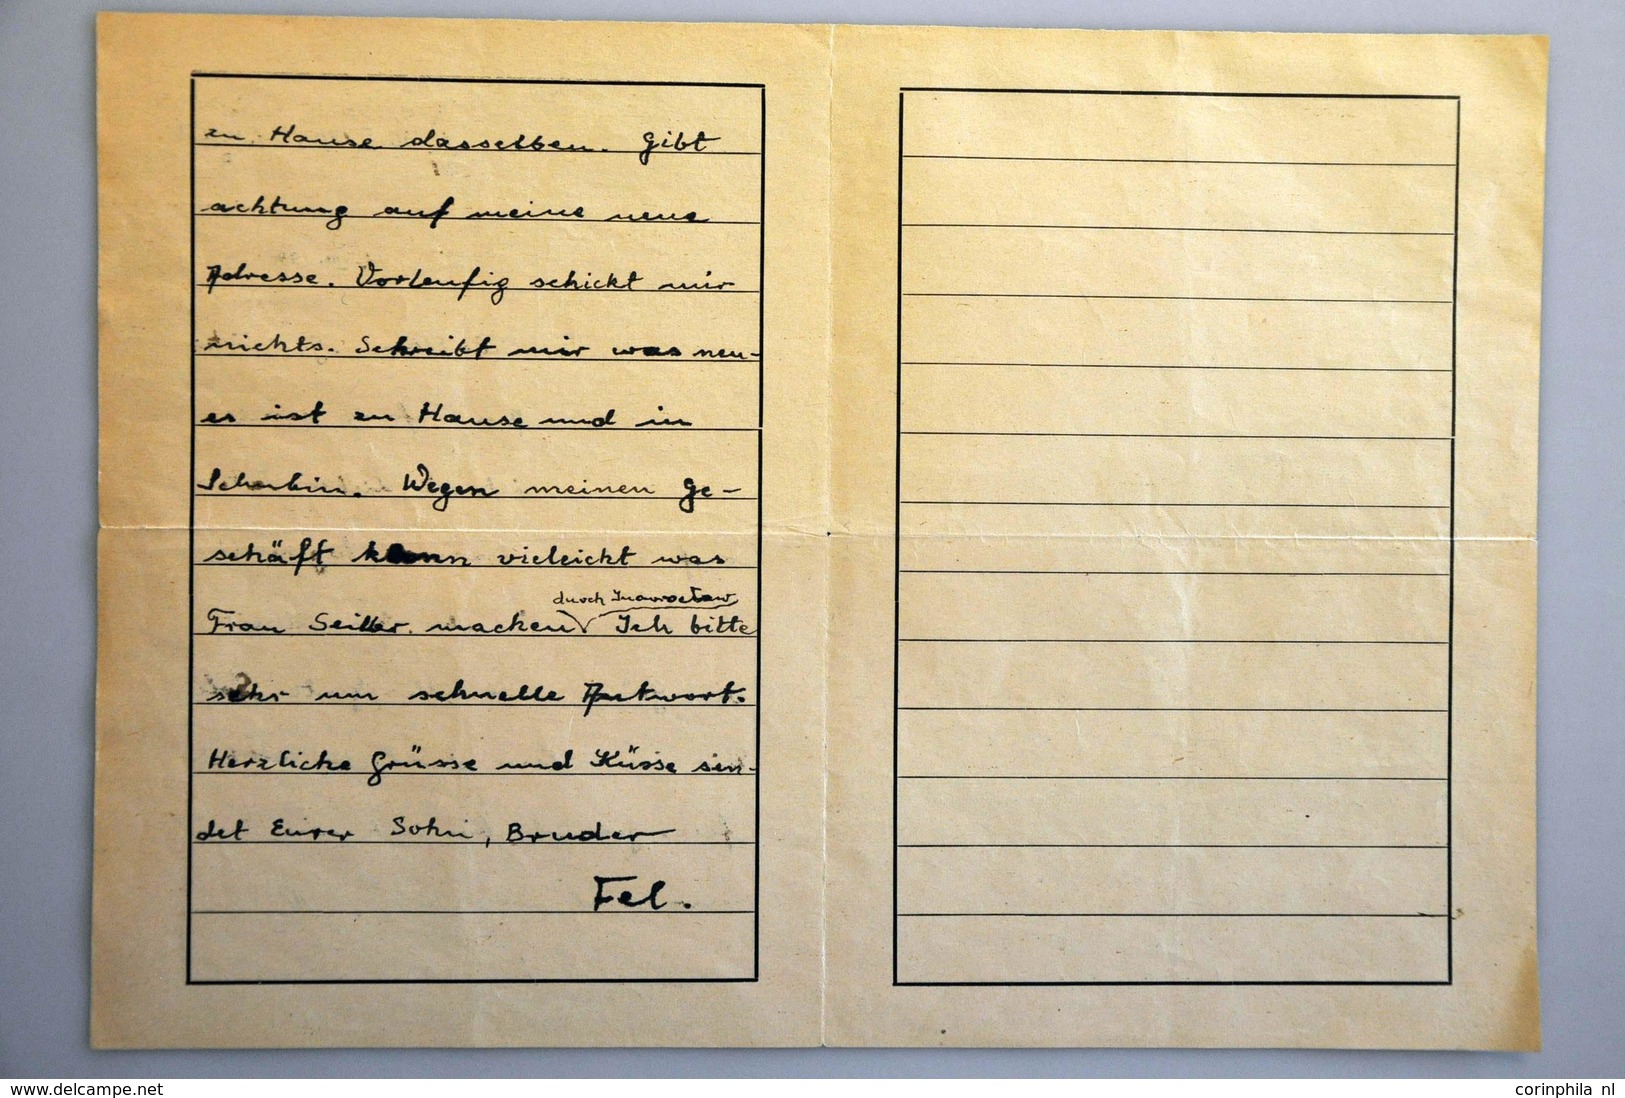 zu Hause dasselben. Gibt
achtung auf meine neue
Adresse. Vorleufig schickt mir
nichts. Schreibt mir was neu-
es ist zu Hause und in
Schubin. Wegen meinen Ge-
schäft kann vieleicht was
durch Inowroclaw
Frau Seiller machen Ich bitte
sehr um schnelle Antwort.
Herzliche Grüsse und Küsse sen-
det Eurer Sohn, Bruder
Fel.
www.delcampe.net
corinphila nl